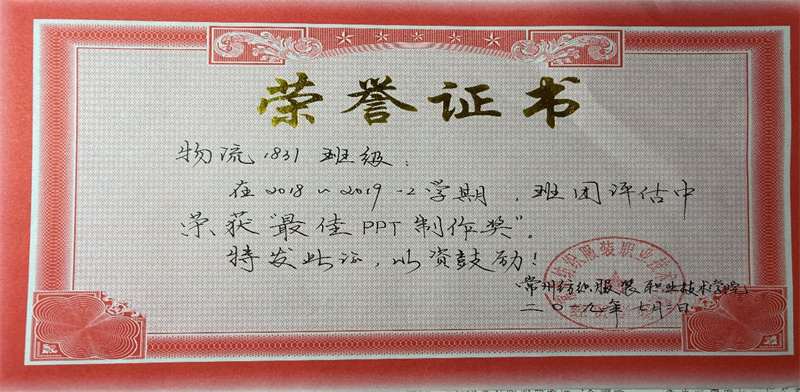 荣誉证书
物流1831 班级：
在2018~2019-2学期，班团评估中
荣获“最佳PPT制作奖”。
特发此证，以资鼓励！
常州纺织服装职业技术学院
二〇一九年七月二日